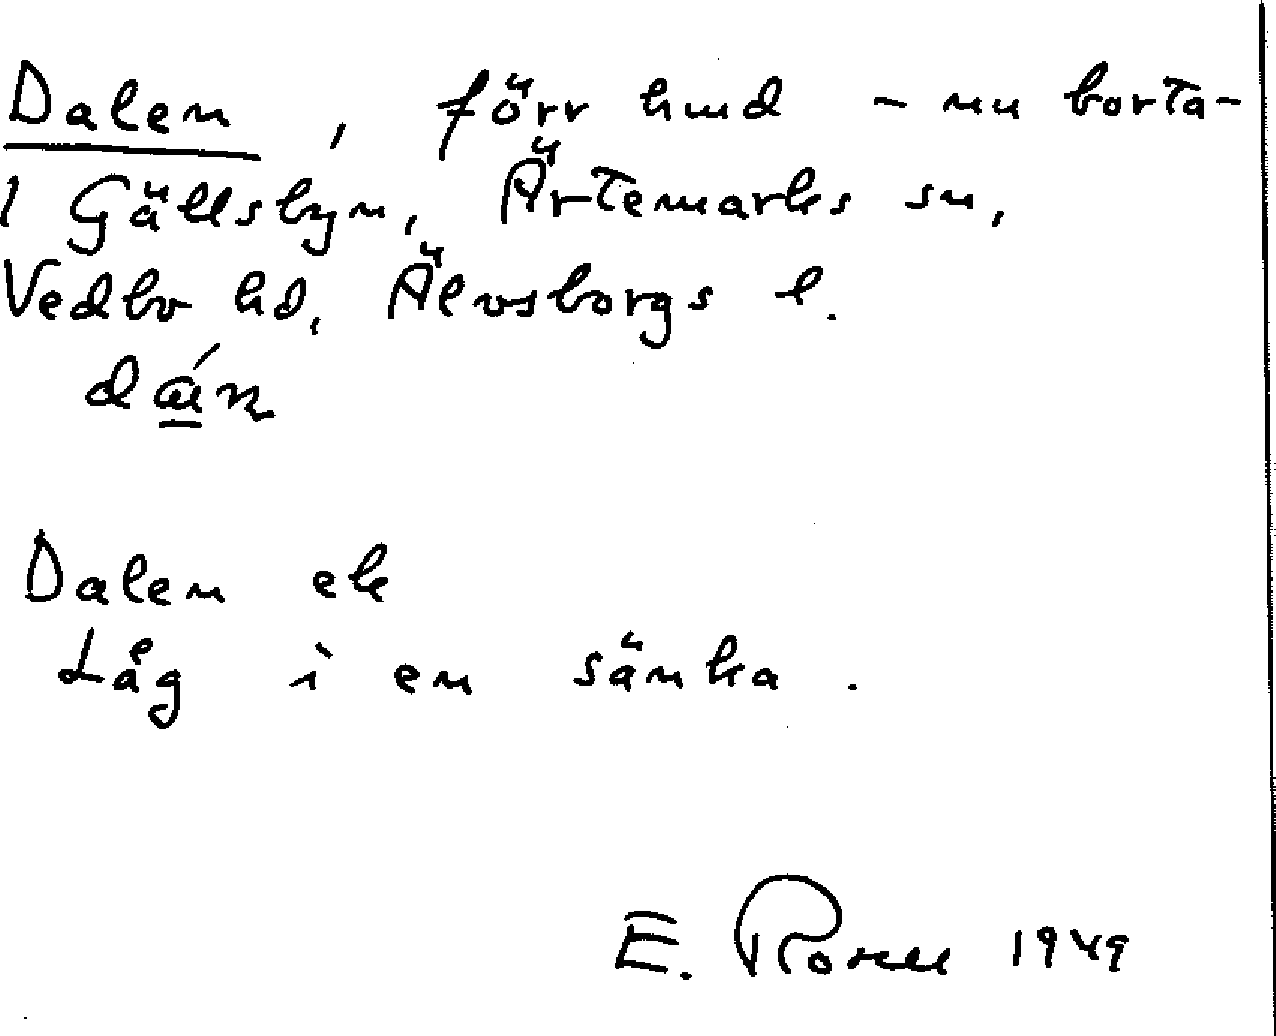 Dalen, förr hmd - nu borta-
i Gällsbyn, Ärtemarks sn,
Vedbo hd, Älvsborgs l.
Dalen ek
Låg i en sänka.
E. 1949